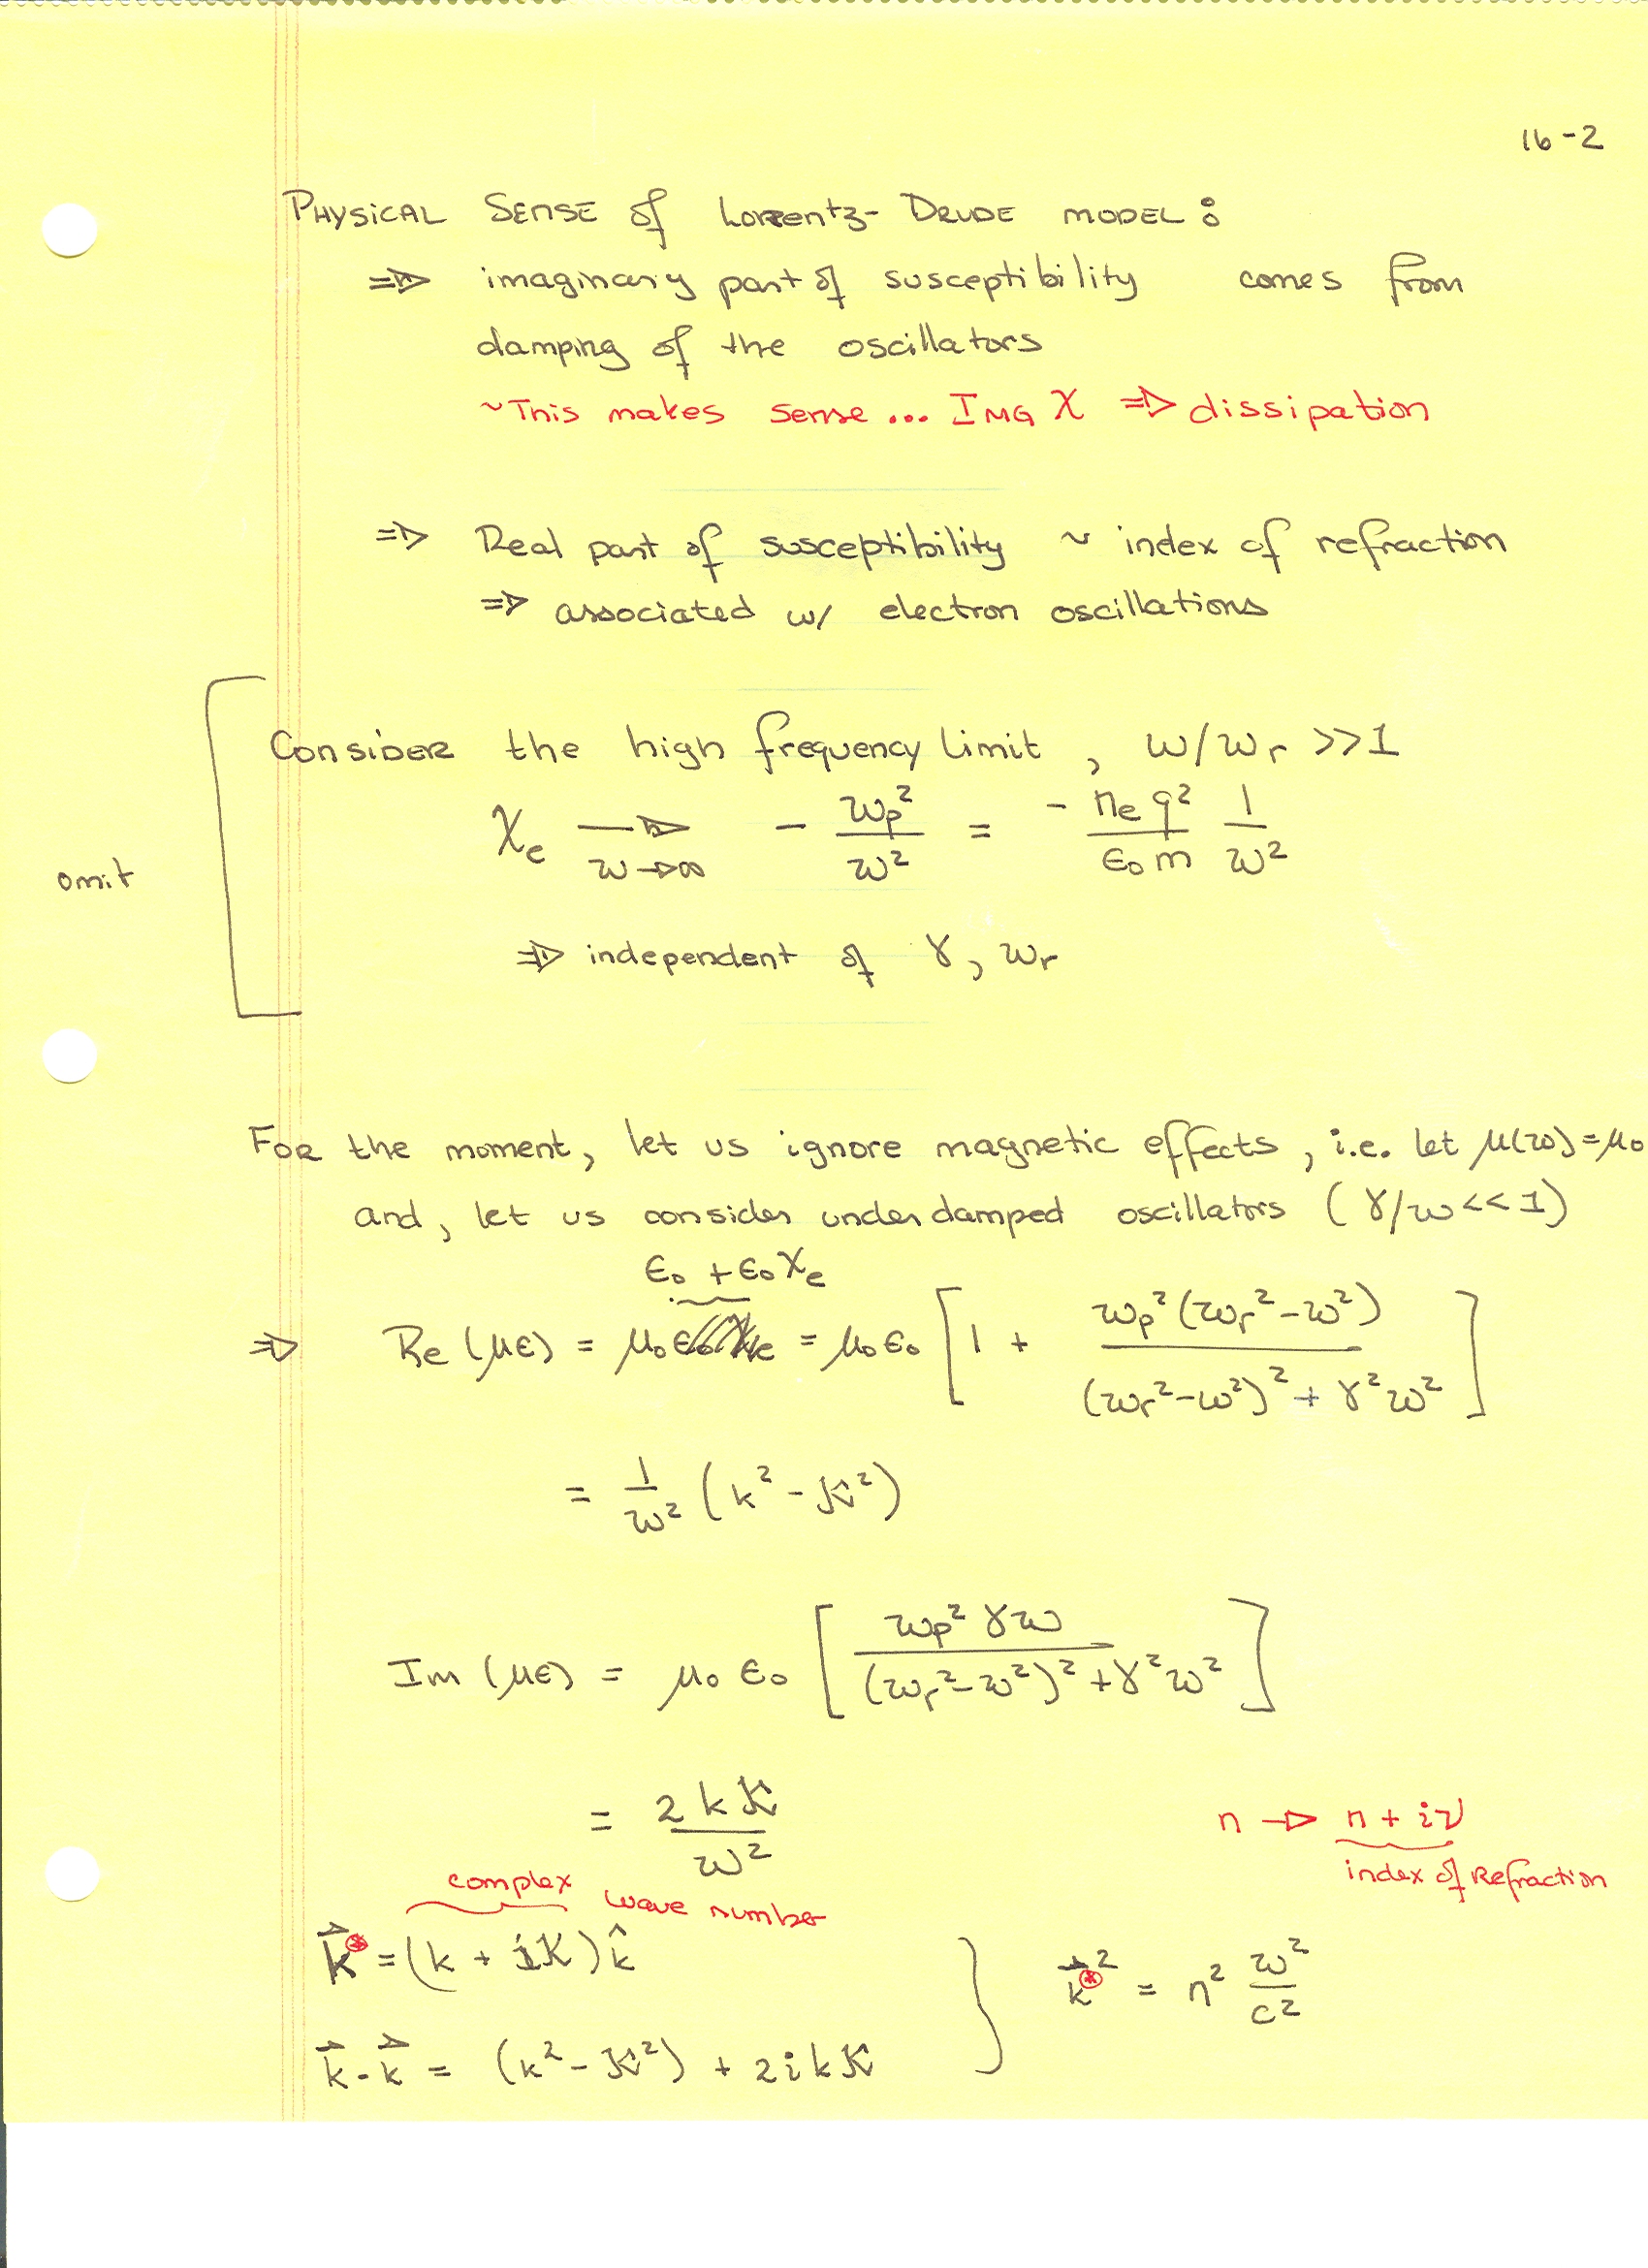 16-2
PHYSICAL SENSE of Lorentz-DRUDE MODEL:
⇒ imaginary part of susceptibility comes from
damping of the oscillators
~This makes sense... IMG χ ⇒ dissipation
⇒ Real part of susceptibility ~ index of refraction
⇒ associated w/ electron oscillations
CONSIDER the high frequency limit, ω/ωr >>1
χe →(ω→∞) - ωp²/ω² = - ne q²/(ϵ0 m) 1/ω²
omit
⇒ independent of γ, ωr
FOR the moment, let us ignore magnetic effects, i.e. let μ(ω)=μ0
and, let us consider underdamped oscillators (γ/ω<<1)
ϵ0 + ϵ0 χe
⇒ Re(μϵ) = μ0 ϵ0 χe = μ0 ϵ0 [1 + ωp²(ωr²-ω²)/((ωr²-ω²)² + γ²ω²)]
= 1/ω² (k² - K²)
Im(μϵ) = μ0 ϵ0 [ωp² γω/((ωr²-ω²)²+γ²ω²)]
= 2kK/ω²
n → n + iν
index of Refraction
complex wave number
k⃗* = (k + iK)k̂
k⃗*² = n² ω²/c²
k⃗·k⃗ = (k² - K²) + 2ikK